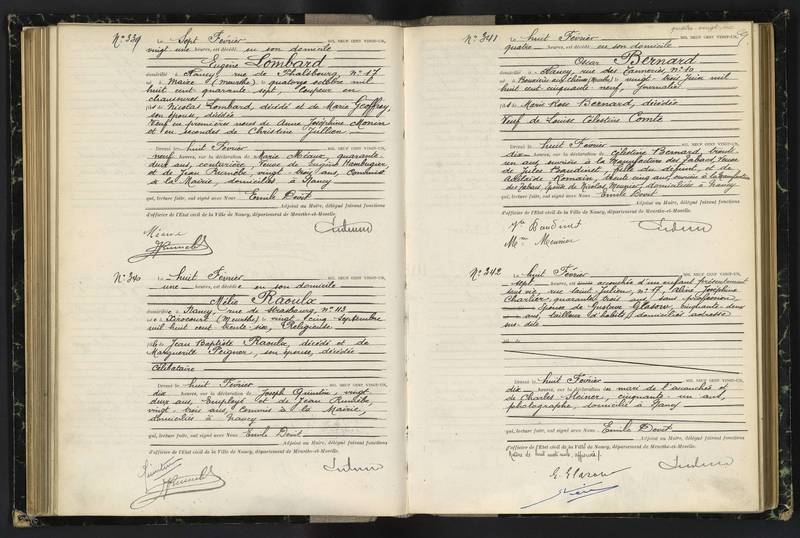 N° 339 Le Sept Février MIL NEUF CENT VINGT-UN,
vingt une heures, est décédé en son domicile
Eugène Lombard
domicilié à Nancy, rue de Phalsbourg, n° 17
né à Maixe (Meurthe) le quatorze octobre mil
huit cent quarante sept, Coupeur en
chaussures
fils de Nicolas Lombard, décédé et de Marie Geoffroy,
son épouse, décédée
Veuf en premières noces de Anne Joséphine Monin
et en secondes de Christine Jullion
Dressé le huit Février MIL NEUF CENT VINGT-UN,
neuf heures, sur la déclaration de Marie quarante-
deux ans, couturière, Veuve de Eugène
et de Jean vingt-trois ans, Commis
à la Mairie, domiciliés à Nancy
qui, lecture faite, ont signé avec Nous Emile Dovit
Adjoint au Maire, délégué faisant fonctions
d'officier de l'Etat civil de la Ville de Nancy, département de Meurthe-et-Moselle.
N° 340 Le huit Février MIL NEUF CENT VINGT-UN,
une heures, est décédée en son domicile
Mélie Raoulx
domiciliée à Nancy, rue de Strasbourg, n° 113
née à Xirocourt (Meurthe) le vingt cinq Septembre
mil huit cent trente six, Religieuse
fille de Jean Baptiste Raoulx, décédé et de
Marguerite Peignier, son épouse, décédée
Célibataire
Dressé le huit Février MIL NEUF CENT VINGT-UN,
dix heures, sur la déclaration de Joseph Quintin, vingt
deux ans, Employé et de Jean
vingt-trois ans, Commis à la Mairie,
domiciliés à Nancy
qui, lecture faite, ont signé avec Nous Emile Dovit
Adjoint au Maire, délégué faisant fonctions
d'officier de l'Etat civil de la Ville de Nancy, département de Meurthe-et-Moselle.
Quintin
N° 341 Le huit Février MIL NEUF CENT VINGT-UN,
quatre heures, est décédé en son domicile
Oscar Bernard
domicilié à Nancy, rue des Tanneries, n° 10
né à le vingt-trois Juin mil
huit cent cinquante neuf, Journalier
fils de Marie Rose Bernard, décédée
Veuf de Louise Célestine Comte
Dressé le huit Février MIL NEUF CENT VINGT-UN,
dix heures, sur la déclaration de Célestine Bernard, trente
un ans, ouvrière à la Manufacture des Tabacs, Veuve
de Jules Baudinet, fille du défunt, et de
Adélaïde Romain, trente cinq ans, ouvrière à la Manufacture
des Tabacs, épouse de Nicolas Meunier, domiciliées à Nancy
qui, lecture faite, ont signé avec Nous Emile Dovit
Adjoint au Maire, délégué faisant fonctions
d'officier de l'Etat civil de la Ville de Nancy, département de Meurthe-et-Moselle.
Vve Baudinet
Mme Meunier
N° 342 Le huit Février MIL NEUF CENT VINGT-UN,
sept heures accouchée d'un enfant présentement
sans vie, rue Saint Julien, n° 17, Aline Joséphine
Charlier, quarante trois ans, sans profession
épouse de Gustave Glasow, cinquante-deux
ans, tailleur d'habits, domiciliés adresse
sus-dite
Dressé le huit Février MIL NEUF CENT VINGT-UN,
dix heures, sur la déclaration du mari de l'accouchée et
de Charles Steiner, cinquante-un ans,
photographe, domicilié à Nancy
qui, lecture faite, ont signé avec Nous Emile Dovit
Adjoint au Maire, délégué faisant fonctions
d'officier de l'Etat civil de la Ville de Nancy, département de Meurthe-et-Moselle.
G. Glasow